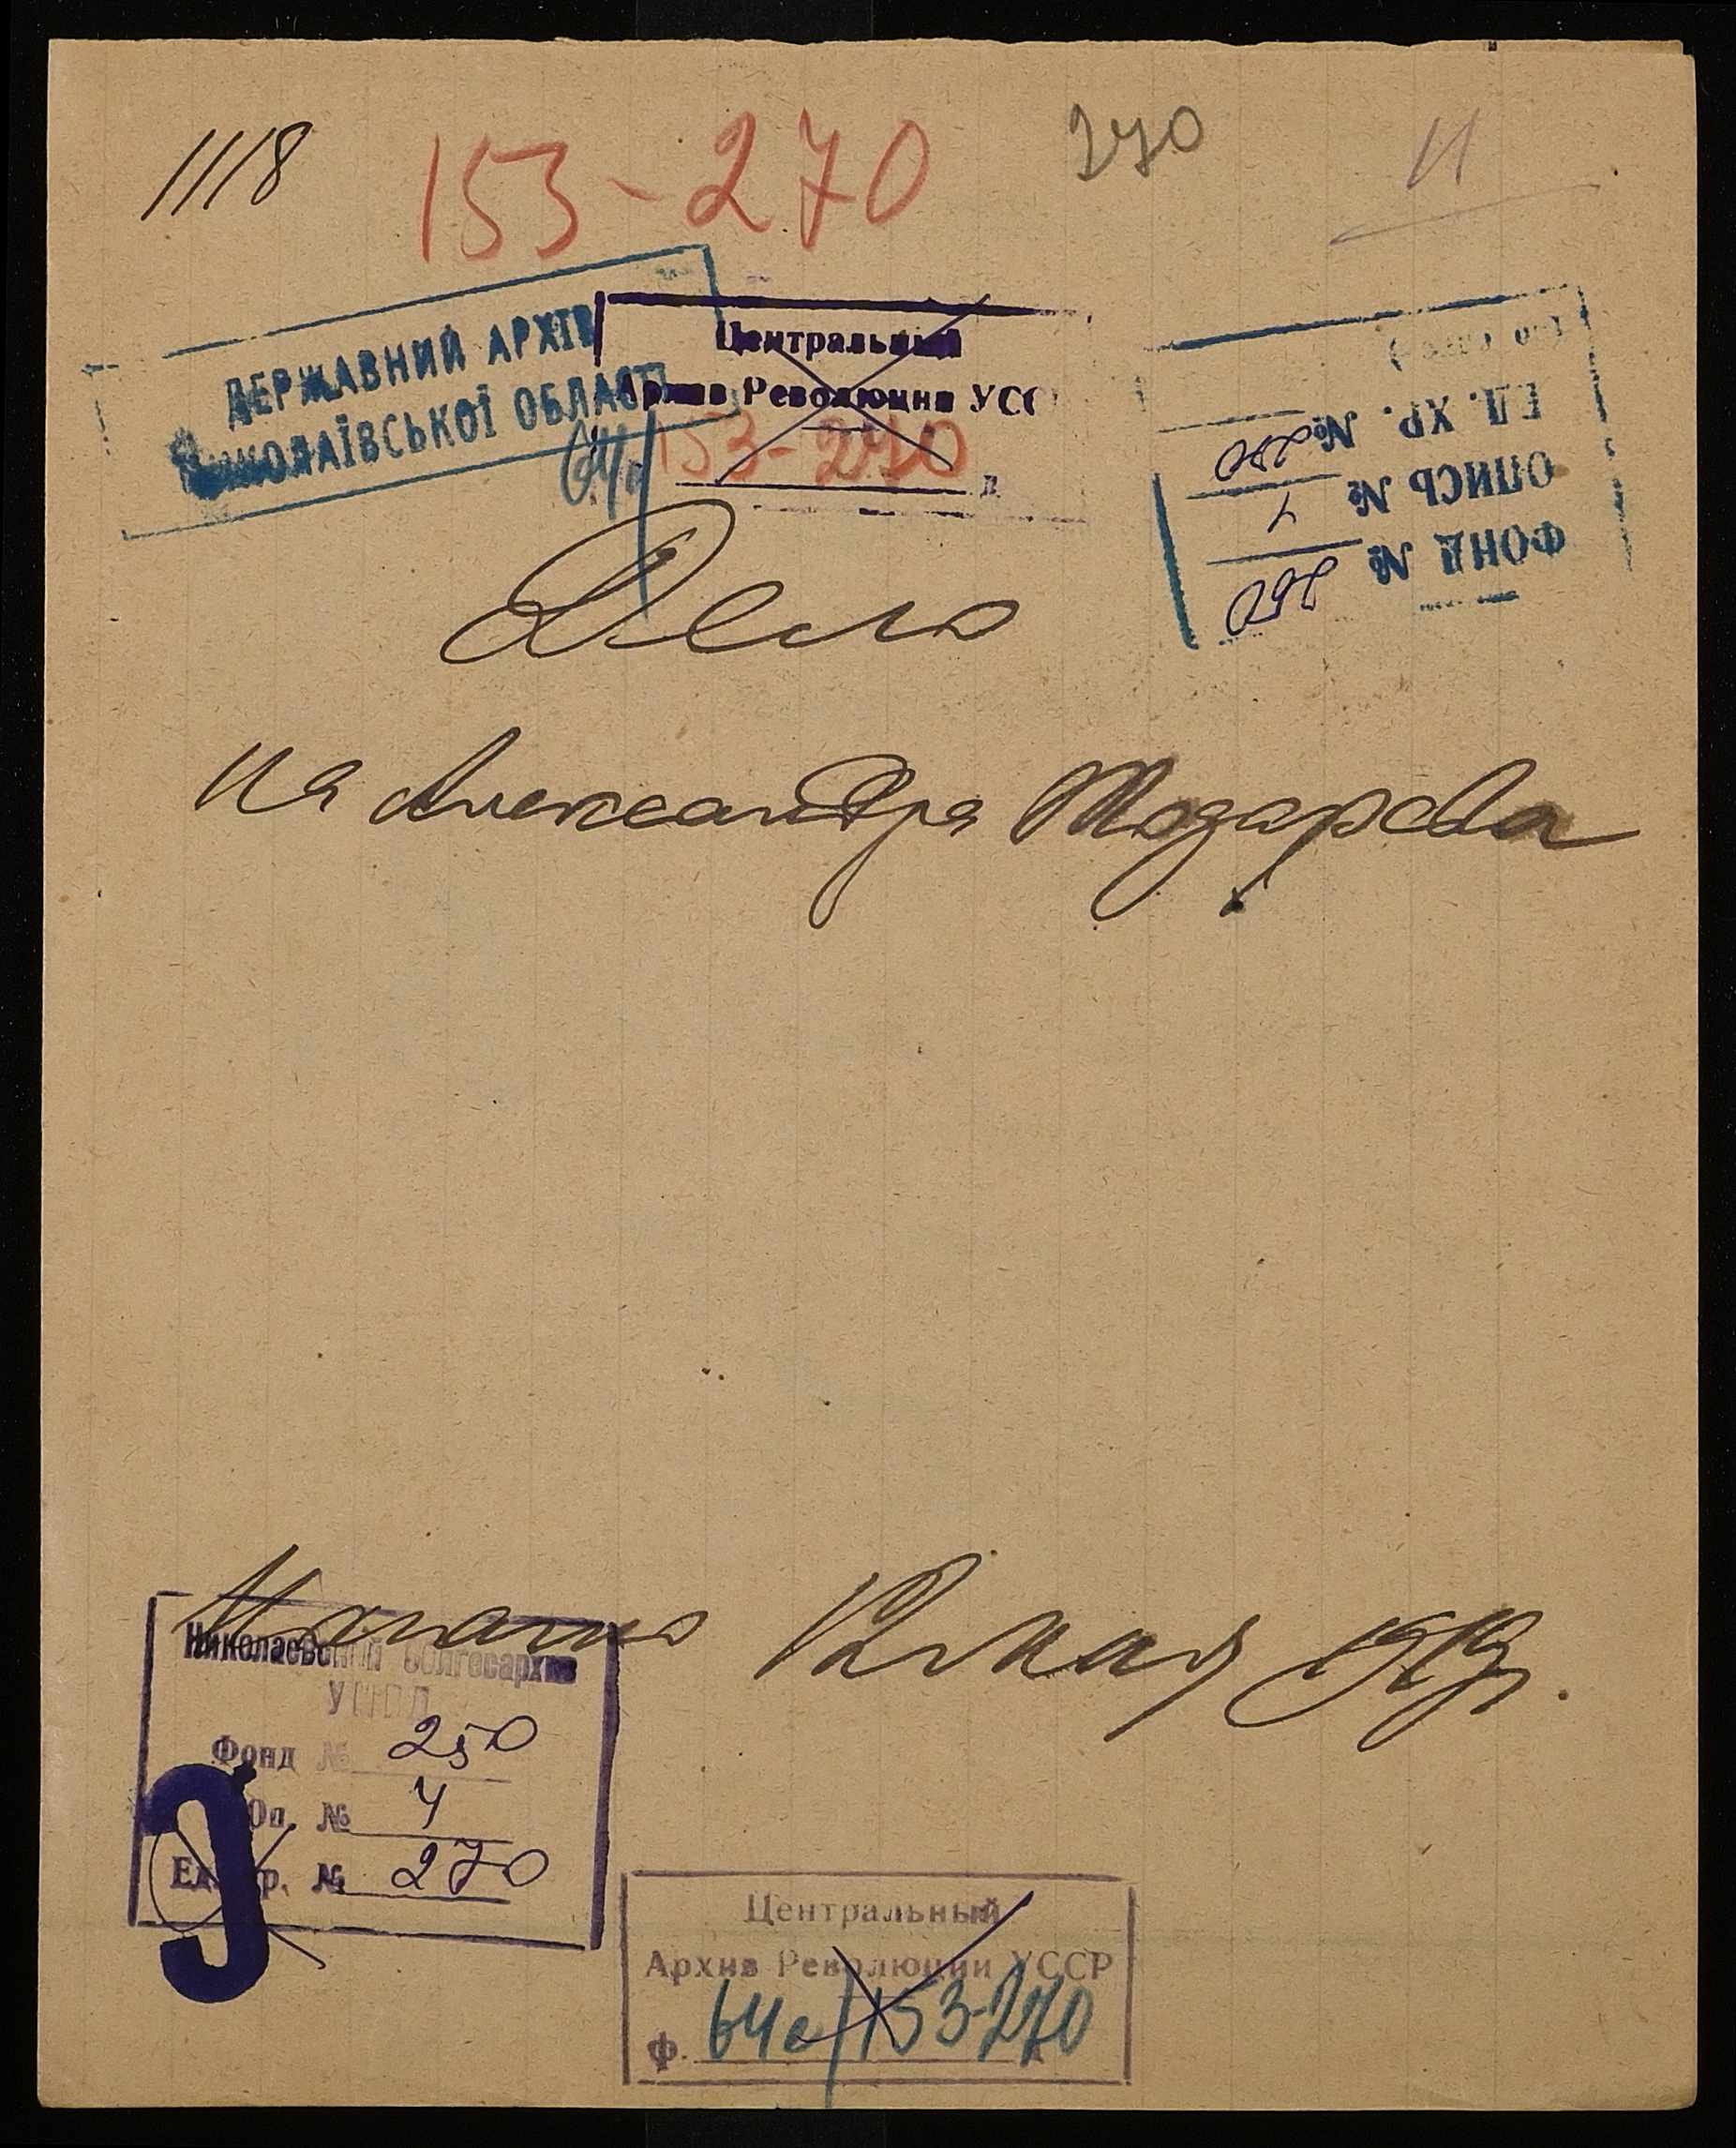 1118
153-270
270
11
ДЕРЖАВНИЙ АРХІВ
МИКОЛАЇВСЬКОЇ ОБЛАСТІ
Центральный
Архив Революции УСС
153-270
д.
ФОНД № 250
ОПИСЬ №
ЕД. ХР. № 270
Дело
на Александра Тодарова
Начато
Николаевский облгосархив
Фонд № 250
Оп. № 4
Ед. хр. № 270
Центральный
Архив Революции УССР
Ф. 64с/153-270